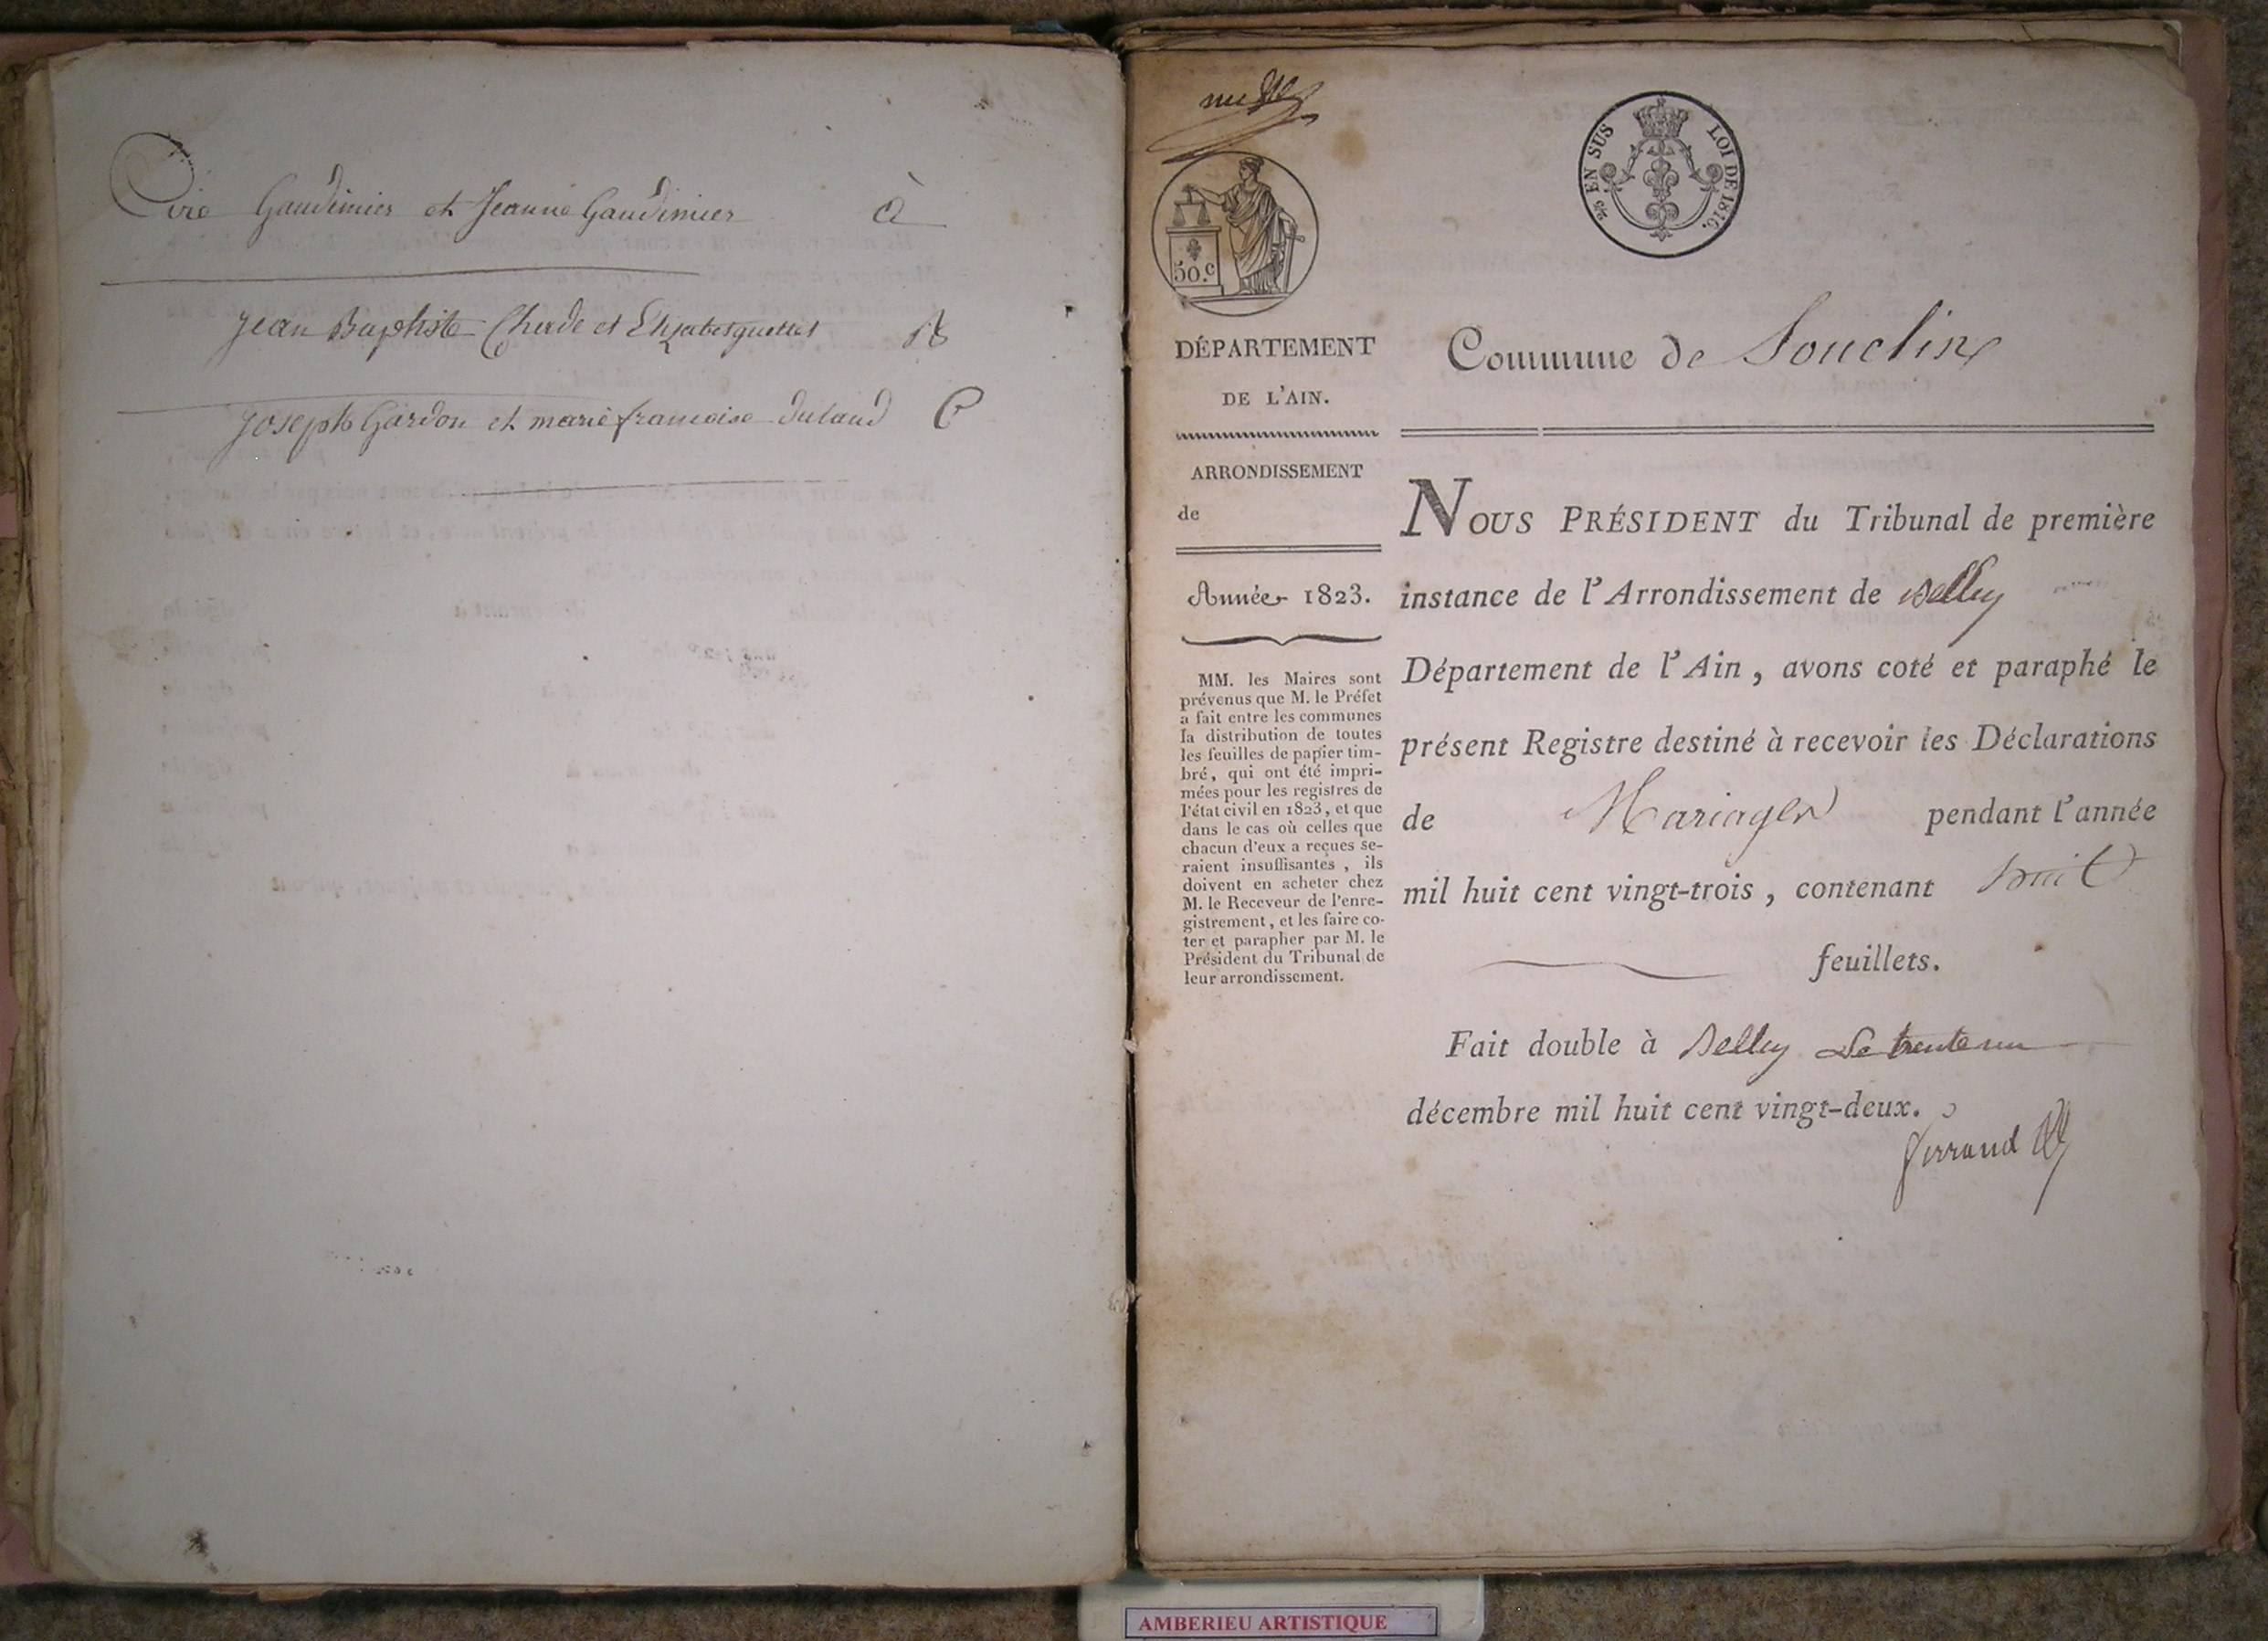 Cire Gaudinier et Jeanne Gaudinier à
Jean Baptiste Chede et B
Joseph Gardon et marie francoise dulaud C
50.c
2/5 EN SUS LOI DE 1816.
DÉPARTEMENT
DE L'AIN.
ARRONDISSEMENT
de
Année 1823.
MM. les Maires sont
prévenus que M. le Préfet
a fait entre les communes
la distribution de toutes
les feuilles de papier tim-
bré, qui ont été impri-
mées pour les registres de
l'état civil en 1823, et que
dans le cas où celles que
chacun d'eux a reçues se-
raient insuffisantes, ils
doivent en acheter chez
M. le Receveur de l'enre-
gistrement, et les faire co-
ter et parapher par M. le
Président du Tribunal de
leur arrondissement.
Commune de Souclin
NOUS PRÉSIDENT du Tribunal de première
instance de l'Arrondissement de Belley
Département de l'Ain, avons coté et paraphé le
présent Registre destiné à recevoir les Déclarations
de Mariages pendant l'année
mil huit cent vingt-trois, contenant huit
feuillets.
Fait double à Belley Le trente un
décembre mil huit cent vingt-deux.
ferrand
AMBERIEU ARTISTIQUE